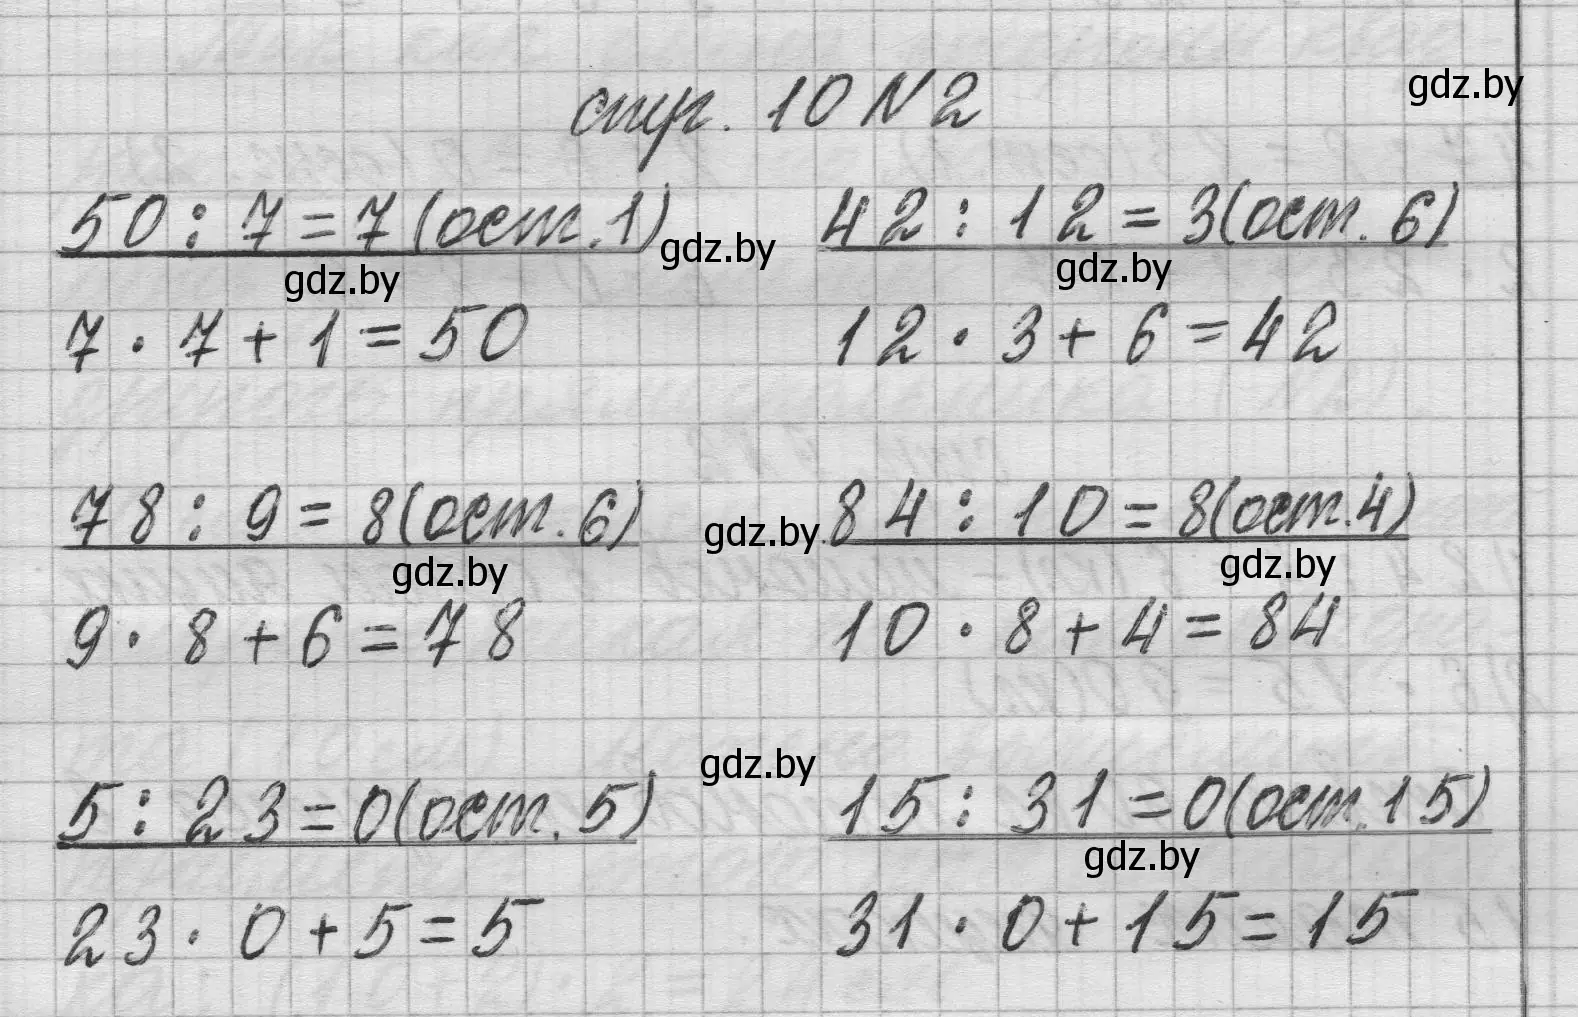 стр. 10 N 2
gdz.by
50 : 7 = 7 (ост. 1)
gdz.by
42 : 12 = 3 (ост. 6)
gdz.by
gdz.by
7 · 7 + 1 = 50
12 · 3 + 6 = 42
78 : 9 = 8 (ост. 6)
gdz.by
84 : 10 = 8 (ост. 4)
gdz.by
gdz.by
9 · 8 + 6 = 78
10 · 8 + 4 = 84
gdz.by
5 : 23 = 0 (ост. 5)
15 : 31 = 0 (ост. 15)
gdz.by
23 · 0 + 5 = 5
31 · 0 + 15 = 15